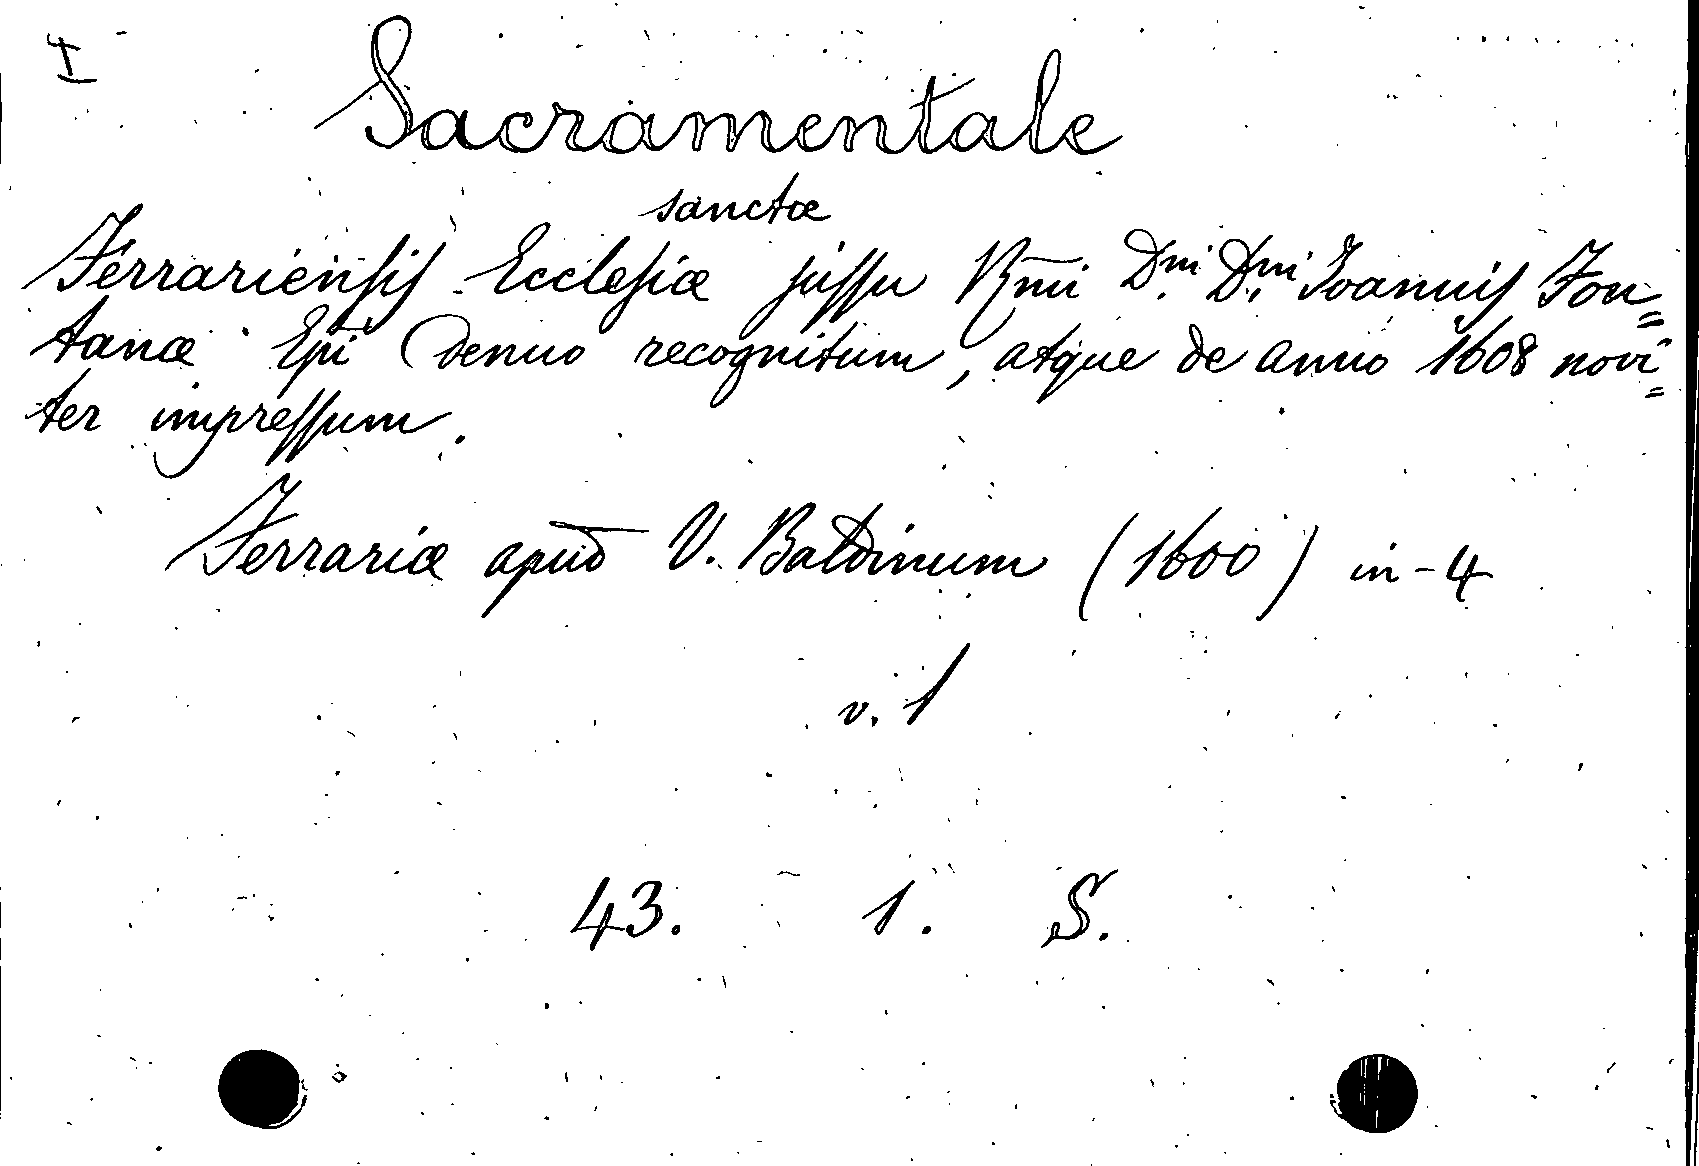 I
Sacramentale
sanctæ
Ferrariensis Ecclesiæ jussu Rm̄i Dni Dni Joannis Fon=
tanæ Epī denuo recognitum, atque de anno 1608 novi=
ter impressum.
Ferrariæ apud V. Baldinum (1600) in-4
v. 1
43. 1. S.